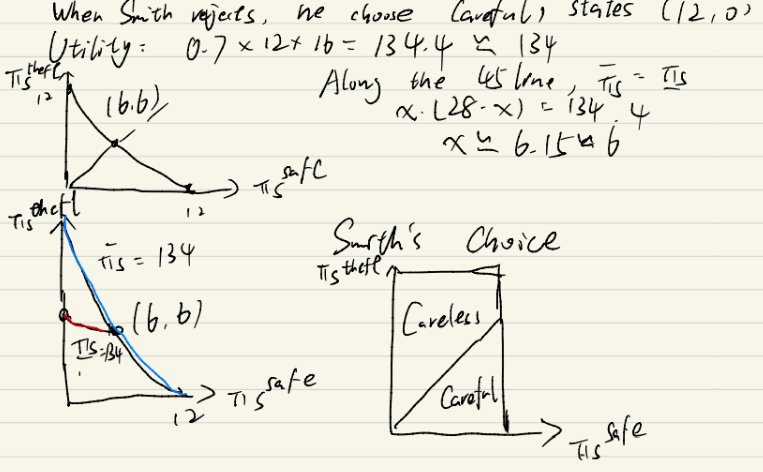 When Smith rejects, he choose Careful, states (12,0)
Utility: 0.7 × 12 × 16 = 134.4 ≃ 134
Along the 45 line, π̄s = π̲s
x·(28-x) = 134.4
x ≃ 6.15 ≈ 6
πs theft
12
(6.6)
πs safe
12
πs theft
π̄s = 134
(6,6)
π̲s = 134
πs safe
12
Smith's Choice
πs theft
Careless
Careful
πs safe